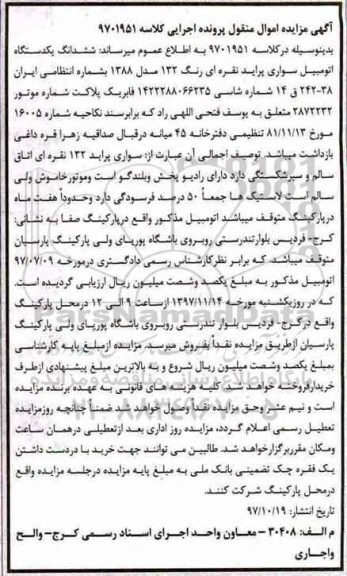 آگهی مزایده اموال منقول پرونده اجرایی کلاسه ۹۷۰۱۹۵۱
بدینوسیله درکلاسه ۹۷۰۱۹۵۱ به اطلاع عموم میرساند: ششدانگ یکدستگاه
اتومبیل سواری پراید نقره ای رنگ ۱۳۲ مدل ۱۳۸۸ بشماره انتظامی ایران
۳۸-۲۴۲ ق ۱۴ شماره شاسی ۱۴۲۲۲۸۸۰۶۶۲۳۵ فابریک پلاکت شماره موتور
۲۸۷۲۲۳۲ متعلق به یوسف فتحی اللهی راد که برابرسند نکاحیه شماره ۱۶۰۰۵
مورخ ۸۱/۱۱/۱۳ تنظیمی دفترخانه ۴۵ میانه درقبال صداقیه زهرا قره داغی
بازداشت میباشد. توصیف اجمالی آن عبارت از: سواری پراید ۱۳۲ نقره ای اتاق
سالم و سپرشکستگی دارد دارای رادیو پخش وبلندگو است وموتورخاموش ولی
سالم است لاستیک ها جمعاً ۵۰ درصد فرسودگی دارد وحدوداً هفت ماه
درپارکینگ متوقف میباشد اتومبیل مذکور واقع درپارکینگ صفا به نشانی:
کرج- فردیس بلوارتندرستی روبروی باشگاه پوریای ولی پارکینگ پارسیان
متوقف میباشد که برابر نظرکارشناس رسمی دادگستری درمورخه ۹۷/۰۷/۰۹
اتومبیل مذکور به مبلغ یکصد وشصت میلیون ریال ارزیابی گردیده است.
که در روزیکشنبه مورخه ۱۳۹۷/۱۱/۱۴ ازساعت ۹ الی ۱۲ درمحل پارکینگ
واقع درکرج- فردیس بلوار تندرستی روبروی باشگاه پوریای ولی پارکینگ
پارسیان ازطریق مزایده نقداً بفروش میرسد. مزایده ازمبلغ پایه کارشناسی
بمبلغ یکصد وشصت میلیون ریال شروع و به بالاترین مبلغ پیشنهادی ازطرف
خریدارفروخته خواهد شد. کلیه هزینه های قانونی به عهده برنده مزایده
است و نیم عشر وحق مزایده نقدا وصول خواهد شد ضمناً چنانچه روزمزایده
تعطیل رسمی اعلام گردد، مزایده روز اداری بعد ازتعطیلی درهمان ساعت
ومکان مقرربرگزارخواهد شد. طالبین می توانند جهت خرید با دردست داشتن
یک فقره چک تضمینی بانک ملی به مبلغ پایه مزایده درجلسه مزایده واقع
درمحل پارکینگ شرکت کنند.
تاریخ انتشار: ۹۷/۱۰/۱۹
م الف: ۳۰۴۰۸ - معاون واحد اجرای اسناد رسمی کرج- والح
واجاری